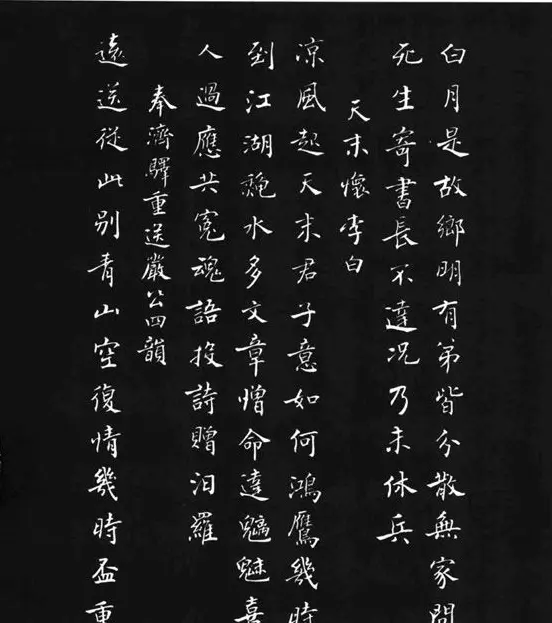 白月是故鄉明有弟皆分散無家問
死生寄書長不達況乃未休兵
天末懷李白
涼風起天末君子意如何鴻鴈幾時
到江湖秋水多文章憎命達魑魅喜
人過應共冤魂語投詩贈汨羅
奉濟驛重送嚴公四韻
遠送從此別青山空復情幾時盃重